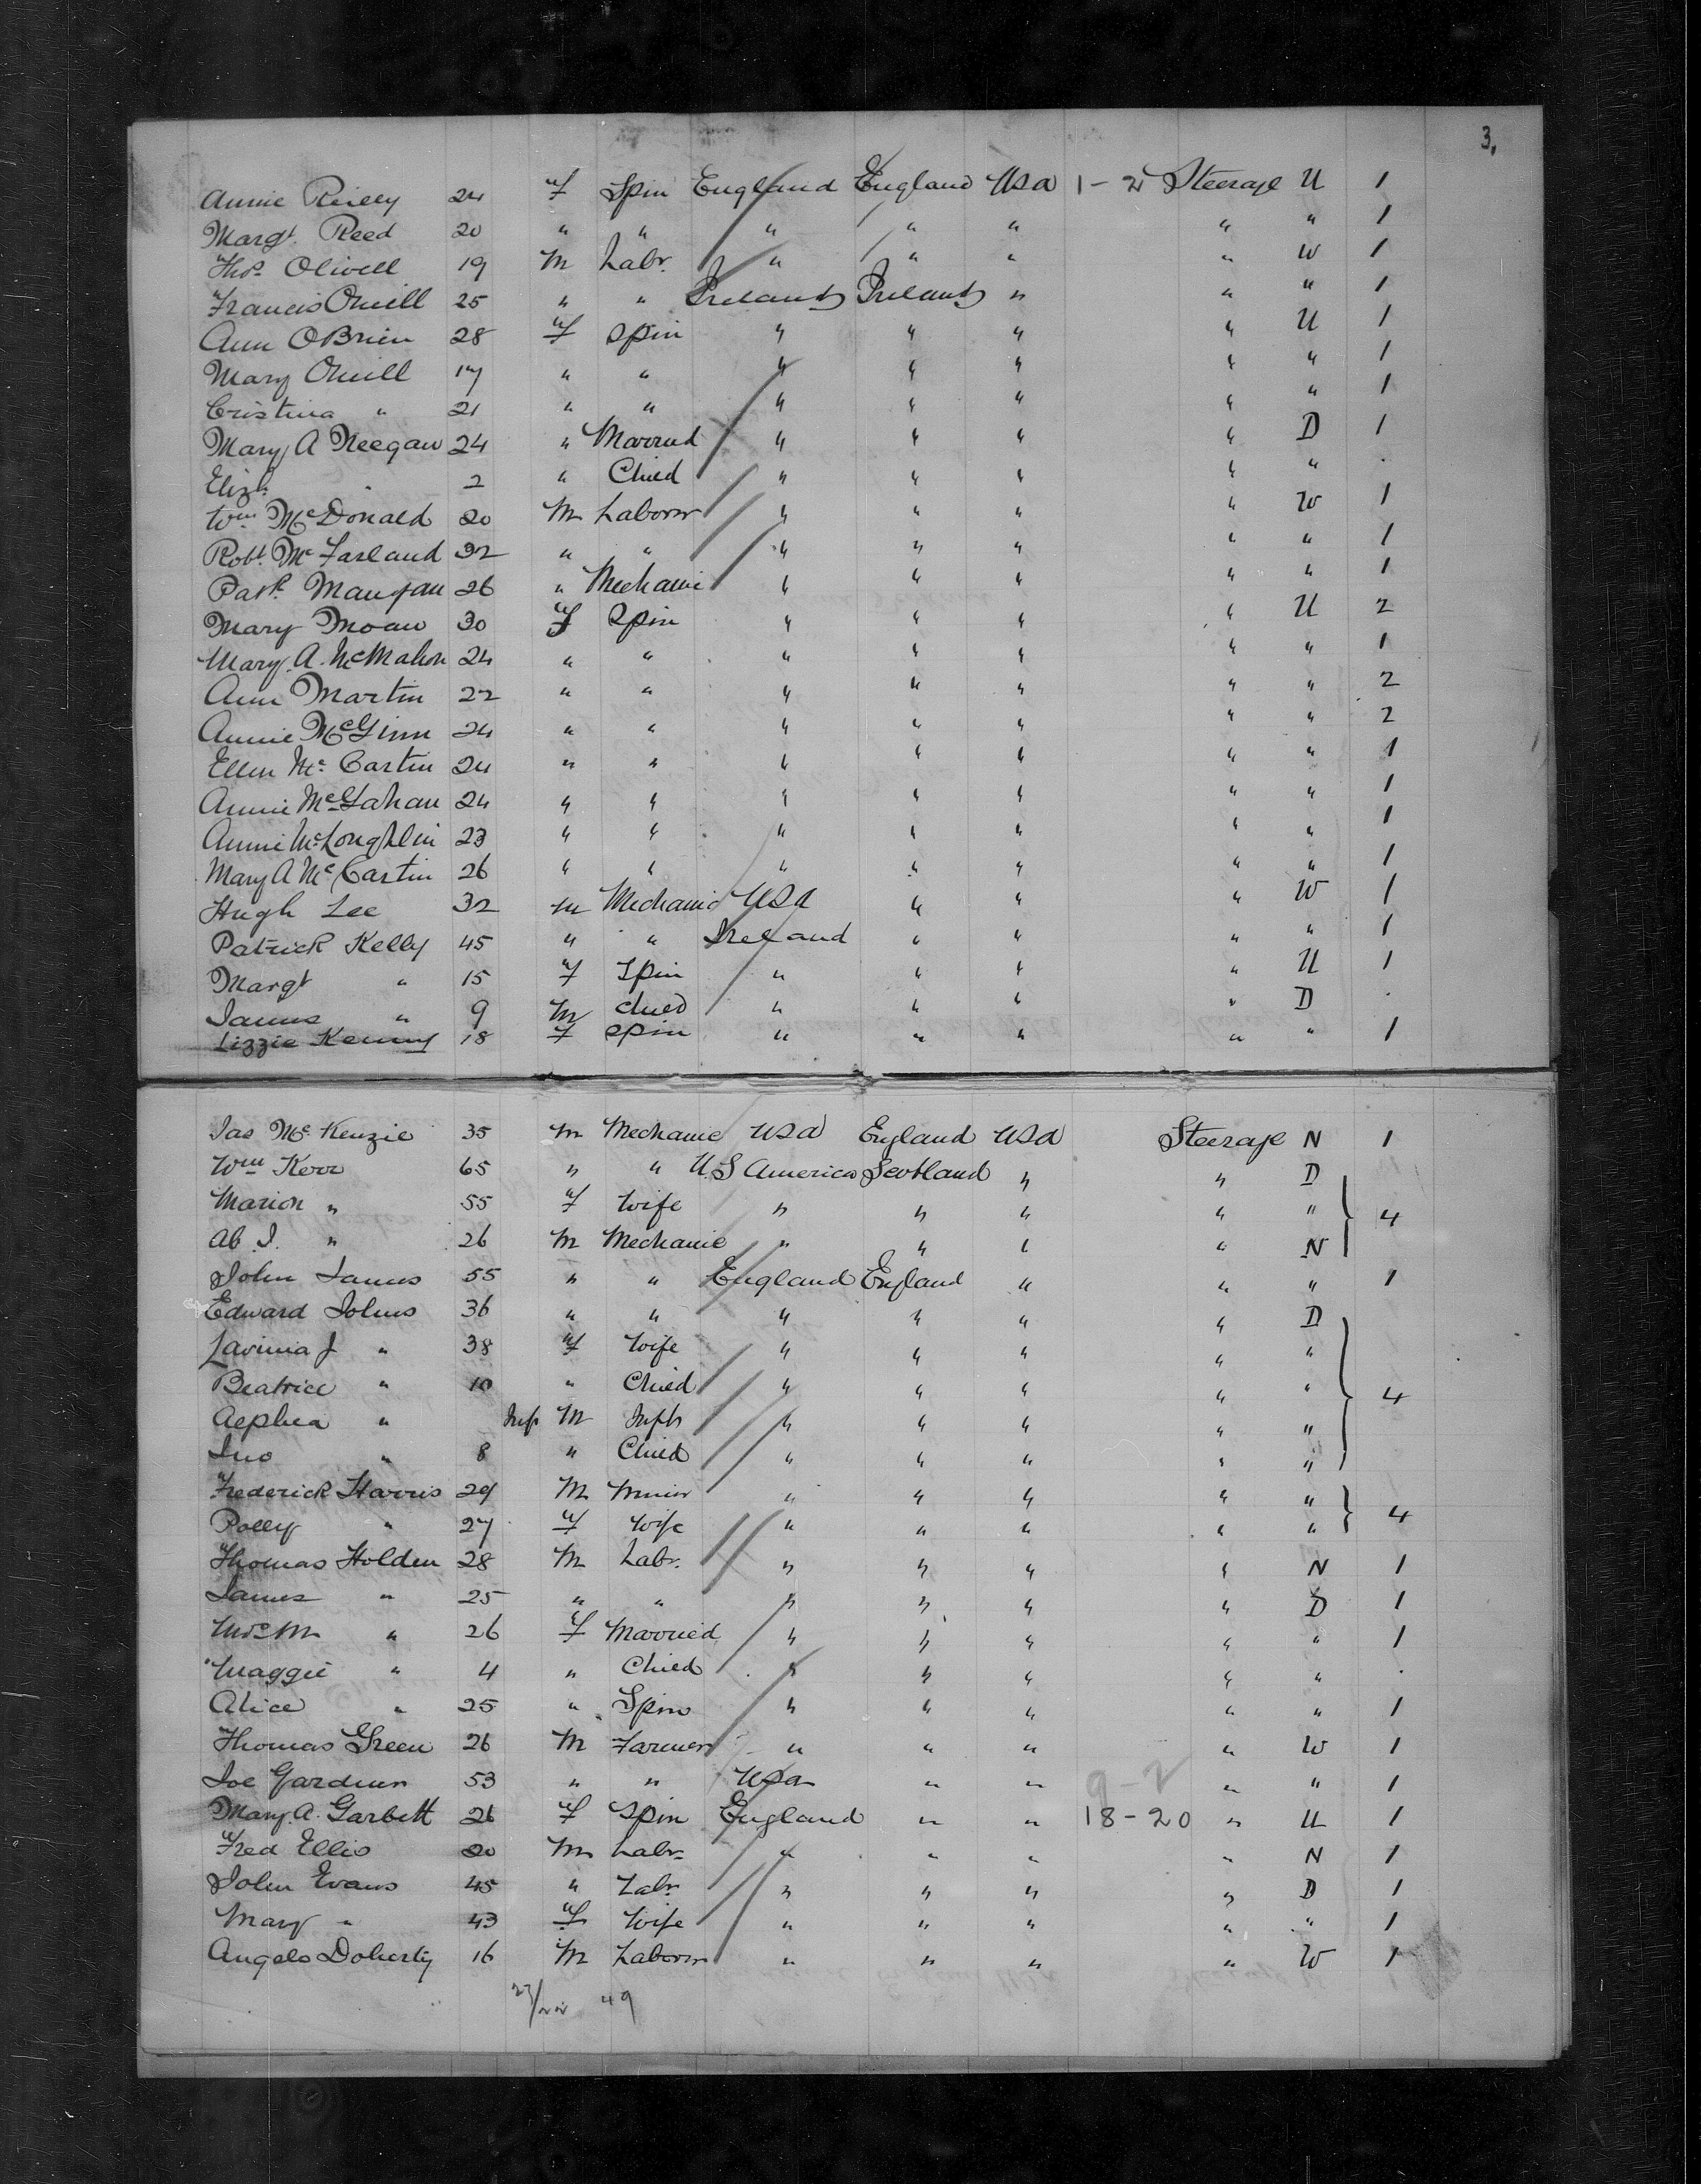 3.
Annie Reiley 24 f Spin England England USA 1-2 Steerage U 1
Margt. Reed 20 " " " " " " " 1
Thos. Olivell 19 M Labr. " " " " W 1
Francis Oneill 25 " " Ireland Ireland " " " 1
Ann OBrien 28 f Spin " " " " U 1
Mary Oneill 17 " " " " " " " 1
Cristina " 21 " " " " " " " 1
Mary A Neegan 24 " Married " " " " D 1
Elizh. " 2 " Child " " " " " .
Wm McDonald 20 M Laborer " " " " W 1
Robt. McFarland 32 " " " " " " " 1
Patk. Mangan 26 " Mechanic " " " " " 1
Mary Moan 30 f Spin " " " " U 2
Mary. A. McMahon 24 " " " " " " " 1
Ann Martin 22 " " " " " " " 2
Annie McGinn 24 " " " " " " " 2
Ellen Mc Cartin 24 " " " " " " " 1
Annie McGahan 24 " " " " " " " 1
Annie McLoughlin 23 " " " " " " " 1
Mary A McCartin 26 " " " " " " " 1
Hugh Lee 32 M Mechanic USA " " " W 1
Patrick Kelly 45 " " Ireland " " " " 1
Margt " 15 f Spin " " " " U 1
James " 9 M Child " " " " D .
Lizzie Kenny 18 f Spin " " " " " 1
Jas Mc Kenzie 35 M Mechanic USA England USA Steerage N 1
Wm Kerr 65 " " U.S America Scotland " " D
Marion " 55 f Wife " " " " " 4
Ab. J. " 26 M Mechanic " " " " N
John James 55 " " England England " " " 1
Edward Johns 36 " " " " " " D
Lavinia J " 38 f Wife " " " " "
Beatrice " 10 " Child " " " " " 4
Aephea " Inf M Inft " " " " "
Jno " 8 " Child " " " " "
Frederick Harris 29 M Miner " " " " " 4
Polly " 27 f Wife " " " " "
Thomas Holden 28 M Labr. " " " " N 1
James " 25 " " " " " " D 1
Mrs M " 26 f Married " " " " " 1
Maggie " 4 " Child " " " " " .
Alice " 25 " Spin " " " " " 1
Thomas Green 26 M Farmer " " " " W 1
Joe Gardner 53 " " USA " " 9-2 " " 1
Mary. A. Garbett 26 f Spin England " " 18-20 " U 1
Fred Ellis 20 M Labr. " " " " N 1
John Evans 45 " Labr " " " " D 1
Mary " 43 f Wife " " " " " 1
Angelo Doherty 16 M Laborer " " " " W 1
27/22 49